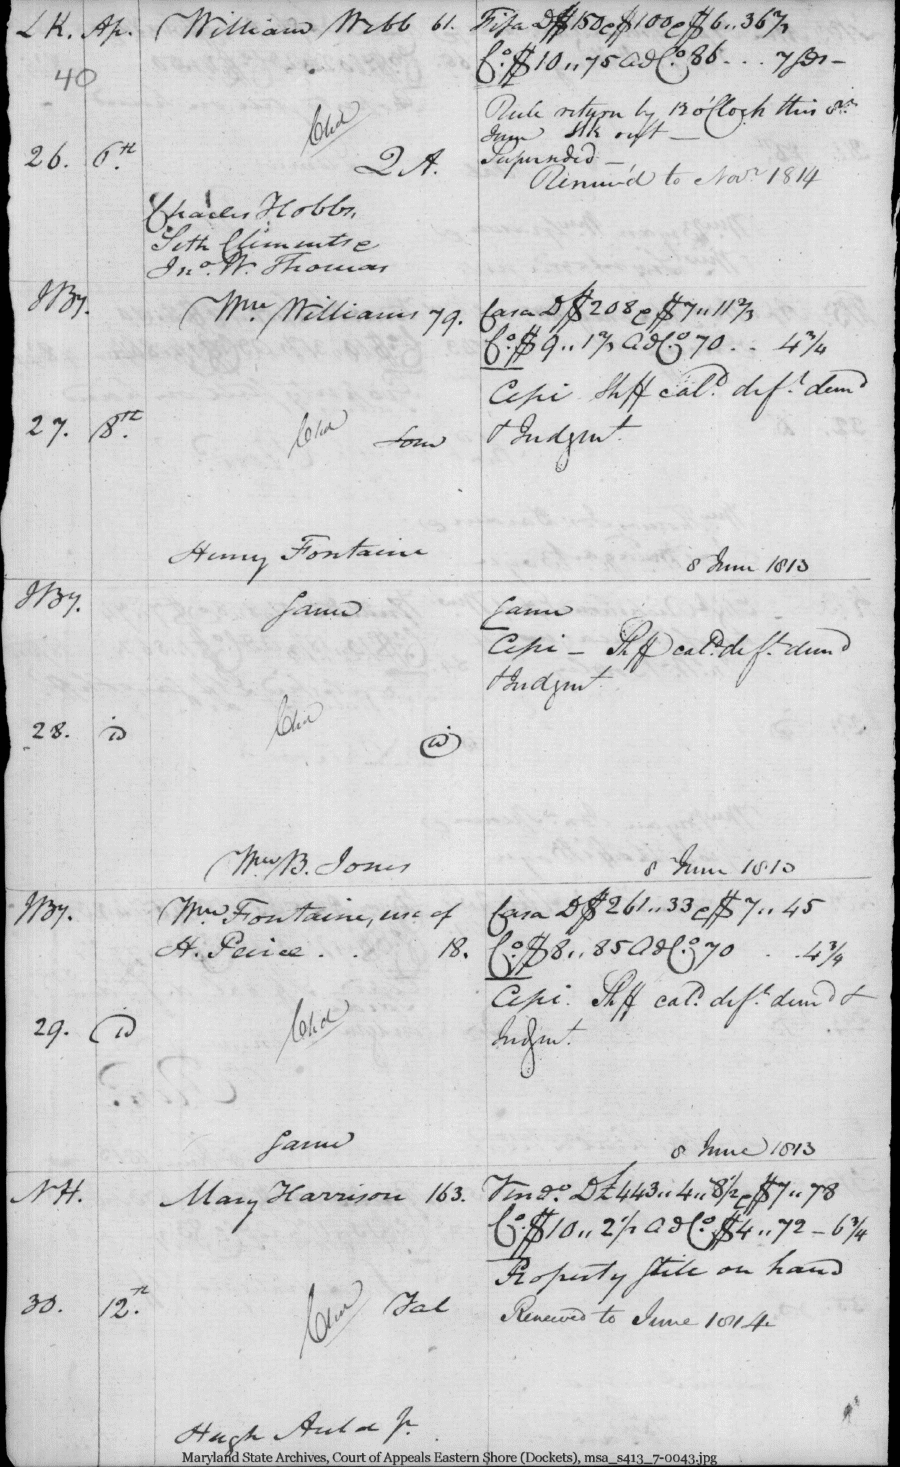 L K. Ap. William Webb 61. Fifa D $150 c $100 c $6..36 2/3
40
Co. $10..75 ad Co. 86 ... 7
Rule return by 12 o'Clock this
June
Chd
26. 6th Q A.
Superseded –
Renew'd to Novr 1814
Charles Hobbs,
Seth Clements &
Jno. W. Thomas
JBy. Wm. Williams 79. Casa D $208 c $7..11 2/3
Co. $9..1 2/3 ad Co. 70 .. 4 3/4
Cepi Shff cald. deft. demd
27. 8th. Chd Som & Judgmt.
Henry Fontaine 8 June 1813
JBy. Same Same
Cepi – Shff cald. deft. demd
& Judgmt.
Chd
28. id id
Wm. B. Jones 8 June 1813
JBy. Wm. Fontaine, use of Casa D $261..33 c $7..45
H. Peirce . . 18. Co. $8..85 ad Co. 70 . . 4 3/4
Cepi. Shff cald. deft. demd &
29. id Chd Judgmt.
Same 8 June 1813
NH. Mary Harrison 163. Vendo. D £443..4..8 1/2 c $7..78
Co. $10..2 1/2 ad Co. $4..72 – 6 3/4
Property still on hand
30. 12.th Chd Tal Renewed to June 1814
Hugh Auld Jr.
Maryland State Archives, Court of Appeals Eastern Shore (Dockets), msa_s413_7-0043.jpg